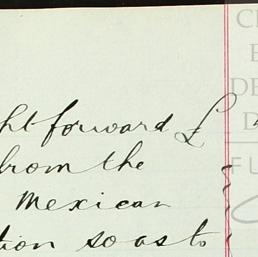 ht forward £
from the
Mexican
tion so as to